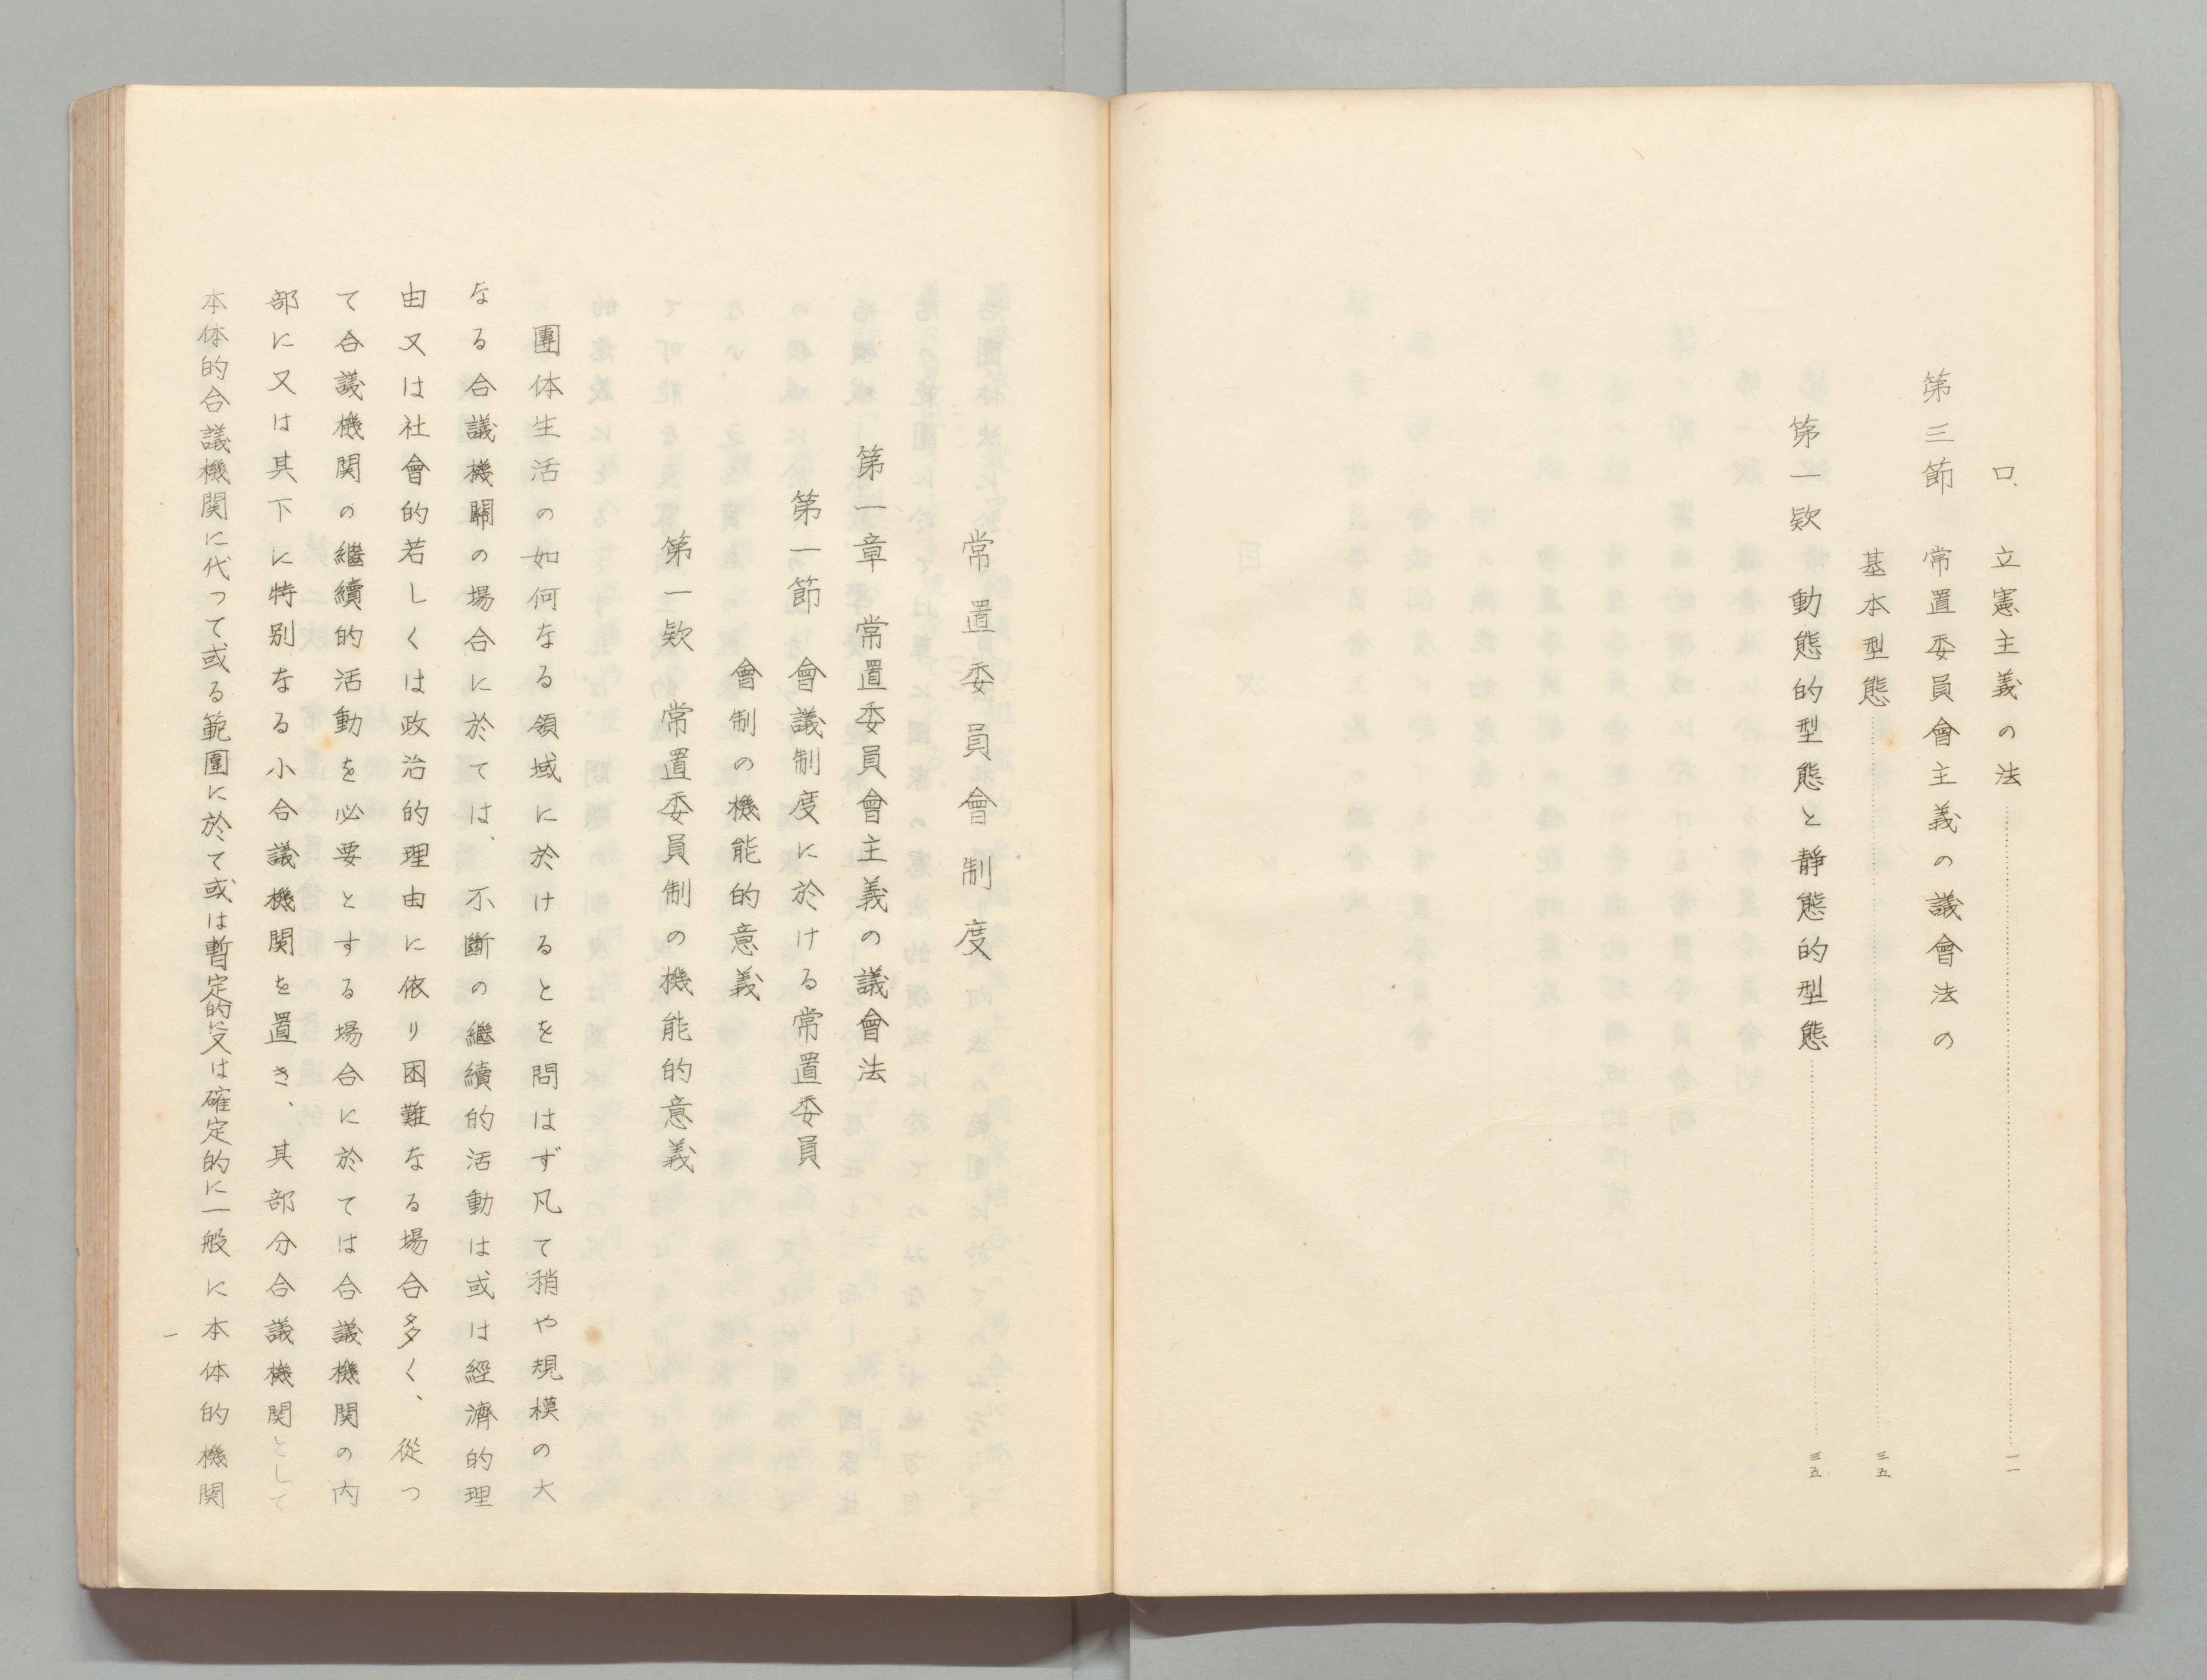 ロ、立憲主義の法…………一一
第三節　常置委員會主義の議會法の
基本型態…………三五
第一欵　動態的型態と靜態的型態…………三五
常置委員會制度
第一章　常置委員會主義の議會法
第一節　會議制度に於ける常置委員
會制の機能的意義
第一欵　常置委員制の機能的意義
團体生活の如何なる領域に於けるとを問はず凡て稍や規模の大
なる合議機關の場合に於ては、不斷の繼續的活動は或は經濟的理
由又は社會的若しくは政治的理由に依り困難なる場合多く、從つ
て合議機関の繼續的活動を必要とする場合に於ては合議機関の内
部に又は其下に特別なる小合議機関を置き、其部分合議機関として
本体的合議機関に代って、或る範圍に於て或は暫定的に又は確定的に一般に本体的機関
一